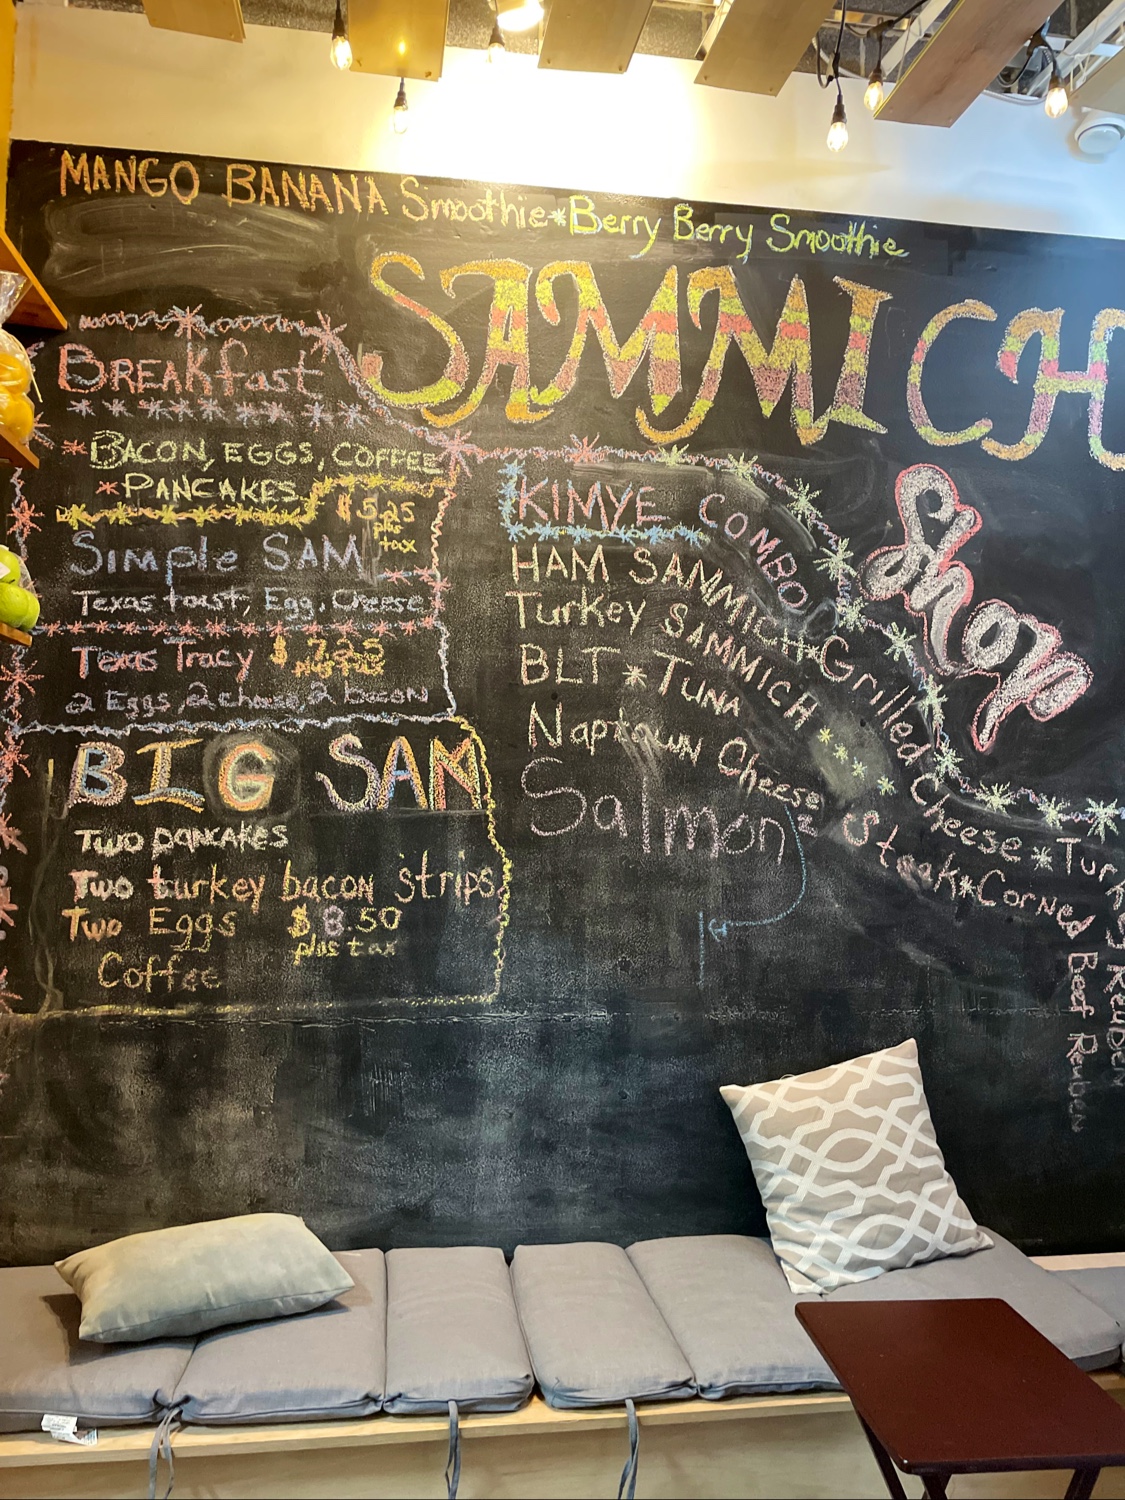 MANGO BANANA Smoothie*Berry Berry Smoothie
SAMMICH
Shop
BREAKfast
*BACON, EGGS, COFFEE
*PANCAKES
$5.25
plus
tax
Simple SAM
Texas toast, Egg, Cheese
Texas Tracy $7.25
plus tax
2 Eggs, 2 cheese, 2 bacon
BIG SAM
Two pancakes
Two turkey bacon strips
Two Eggs $8.50
plus tax
Coffee
KIMYE COMBO
HAM SAMMICH*Grilled Cheese*Turkey REUBEN
Turkey SAMMICH
BLT*TUNA
Naptown Cheese Steak*Corned Beef Reuben
Salmon